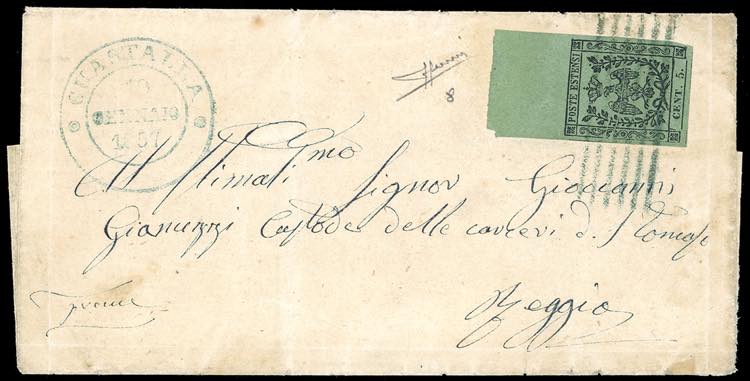 GUASTALLA
10
GENNAIO
1857
POSTE ESTENSI
CENT. 5.
8
Al Stimatmo Signor Giovanni
Gianuzzi Custode delle carceri di S. Tomaso
Reggio